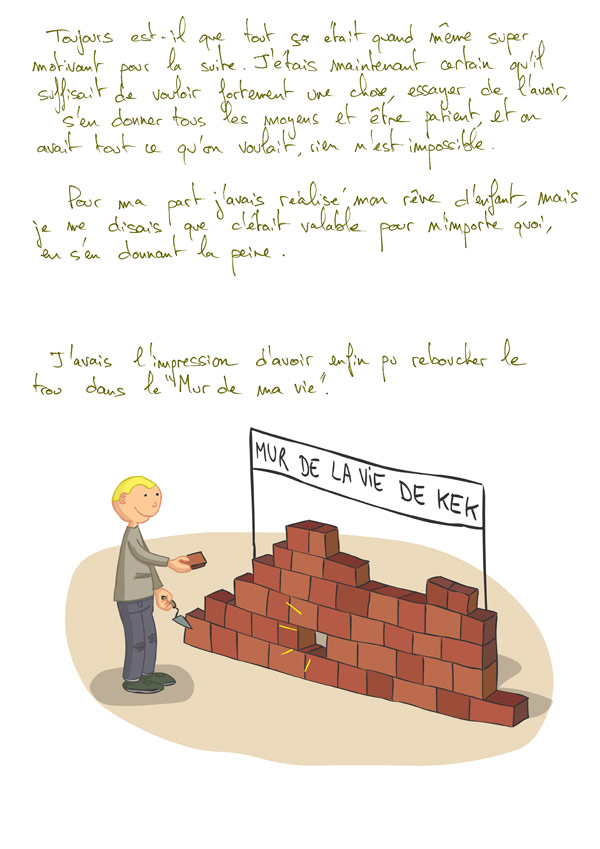 Toujours est-il que tout ça était quand même super
motivant pour la suite. J'étais maintenant certain qu'il
suffisait de vouloir fortement une chose, essayer de l'avoir,
s'en donner tous les moyens et être patient, et on
avait tout ce qu'on voulait, rien n'est impossible.
Pour ma part j'avais réalisé mon rêve d'enfant, mais
je me disais que c'était valable pour n'importe quoi,
en s'en donnant la peine.
J'avais l'impression d'avoir enfin pu reboucher le
trou dans le "Mur de ma vie".
MUR DE LA ViE DE KEK